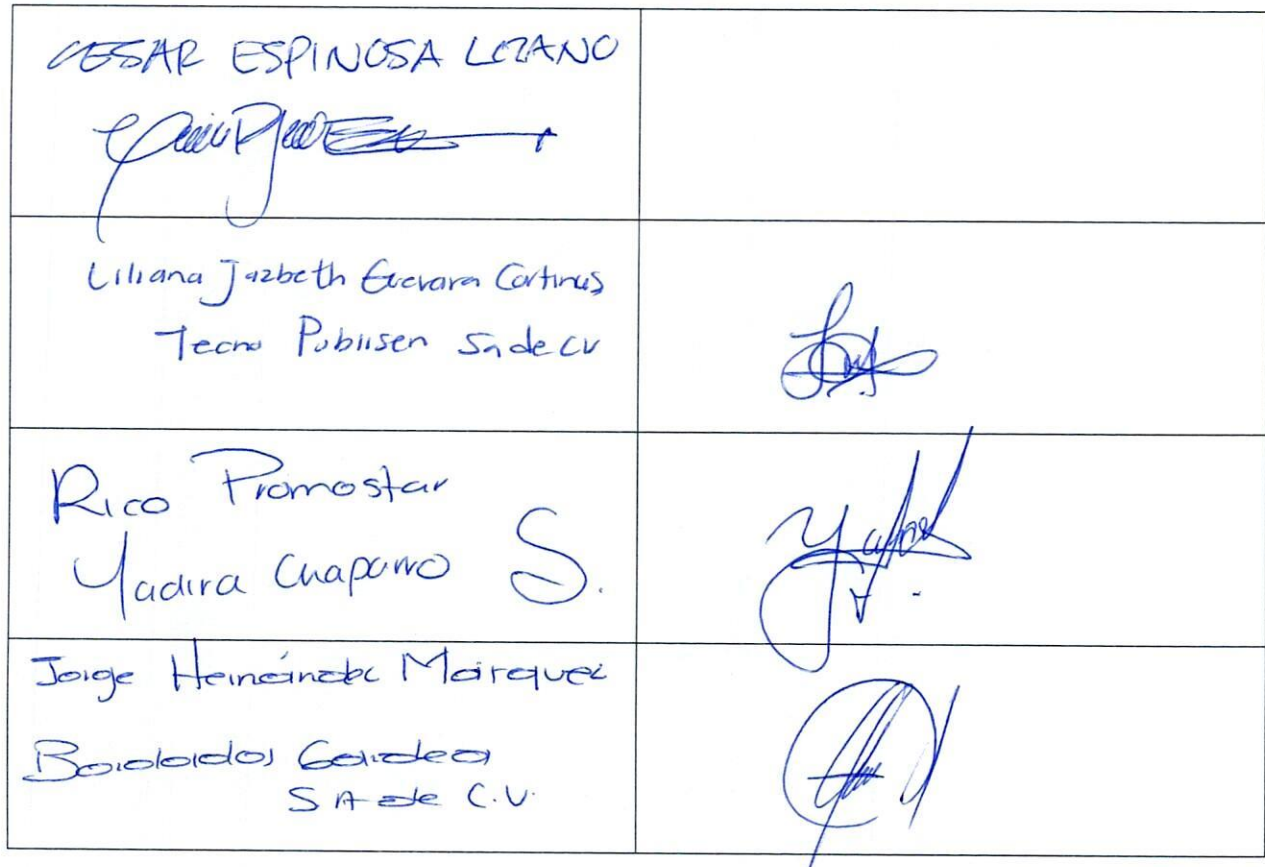 CESAR ESPINOSA LOZANO
Liliana Jazbeth Guevara Cortinas
Tecno Publisen Sa de CV
Rico Promostar
Yadira Chaparro S.
Jorge Hernández Márquez
Bordados
S A de C.V.